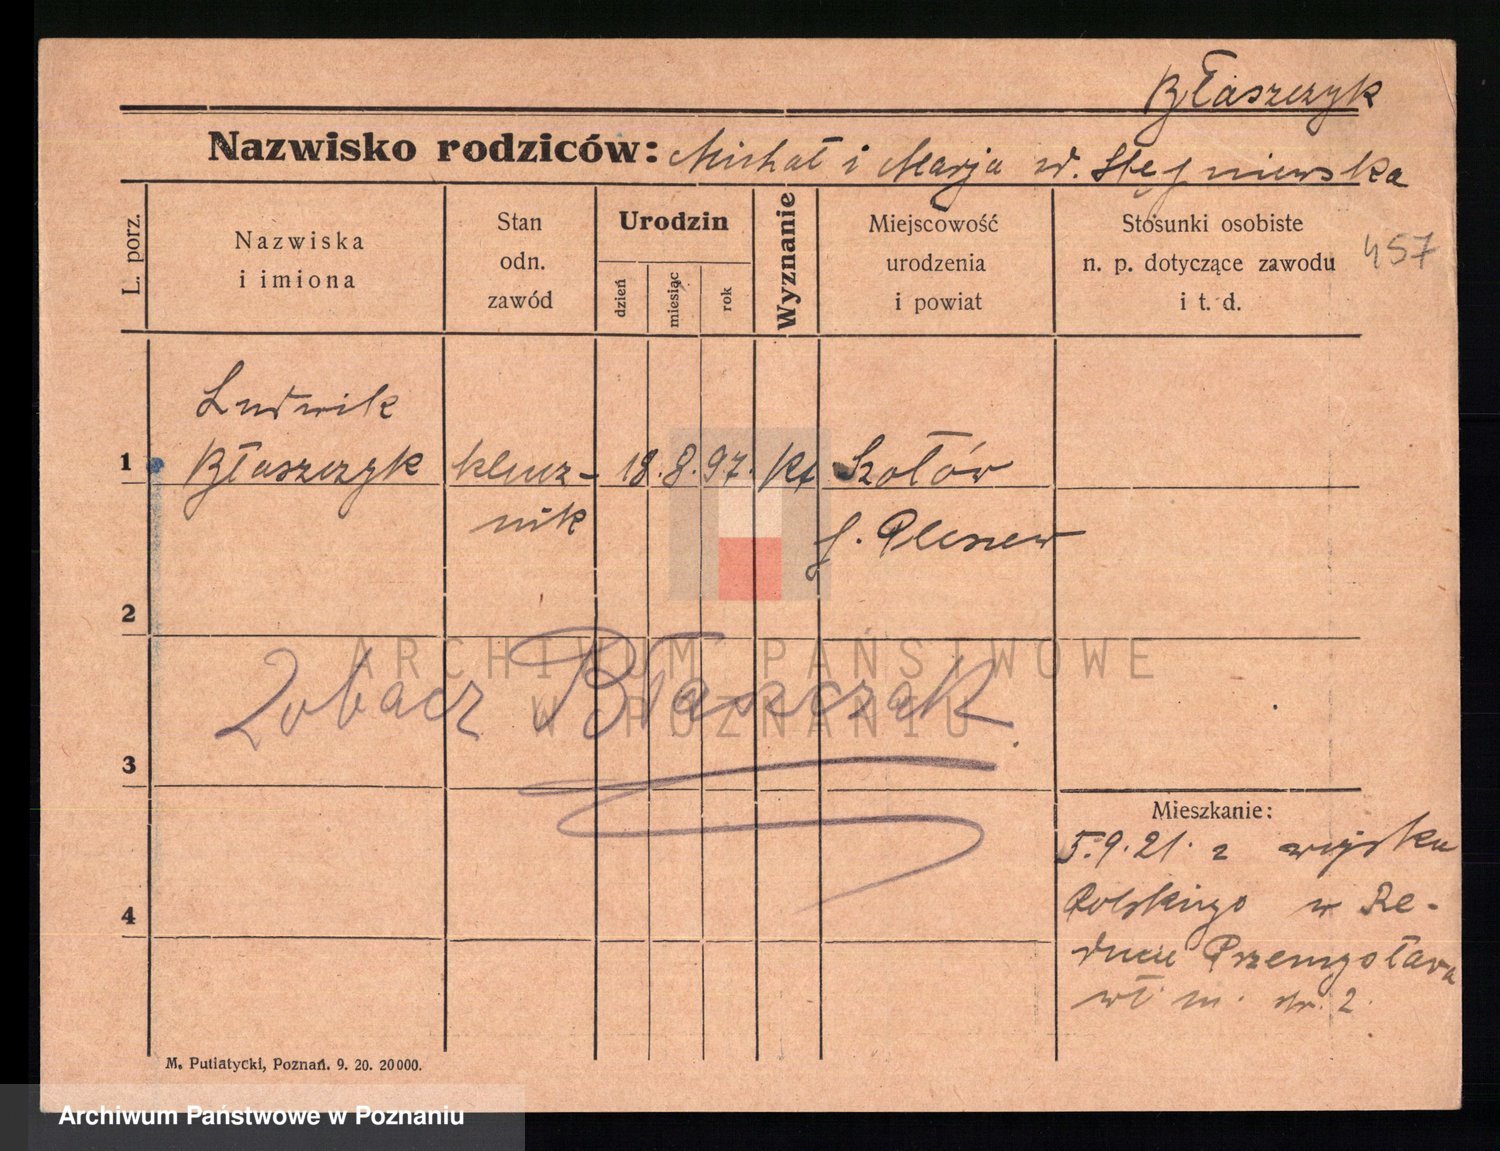 Błaszczyk
Nazwisko rodziców: Michał i Marja
L. porz.
Nazwiska
i imiona
Stan
odn.
zawód
Urodzin
dzień
miesiąc
rok
Wyznanie
Miejscowość
urodzenia
i powiat
Stosunki osobiste
n. p. dotyczące zawodu
i t. d.
457
Ludwik
1 Błaszczyk klucz- 18. 8. 97. kt Szołów
nik Pleszew
2
Zobacz Błaszczak.
3
Mieszkanie:
5.9.21. z wojska
4 Polskiego w Re-
Przemysława
nr. 2
M. Putiatycki, Poznań. 9. 20. 20000.
ARCHIWUM PAŃSTWOWE
W POZNANIU
Archiwum Państwowe w Poznaniu